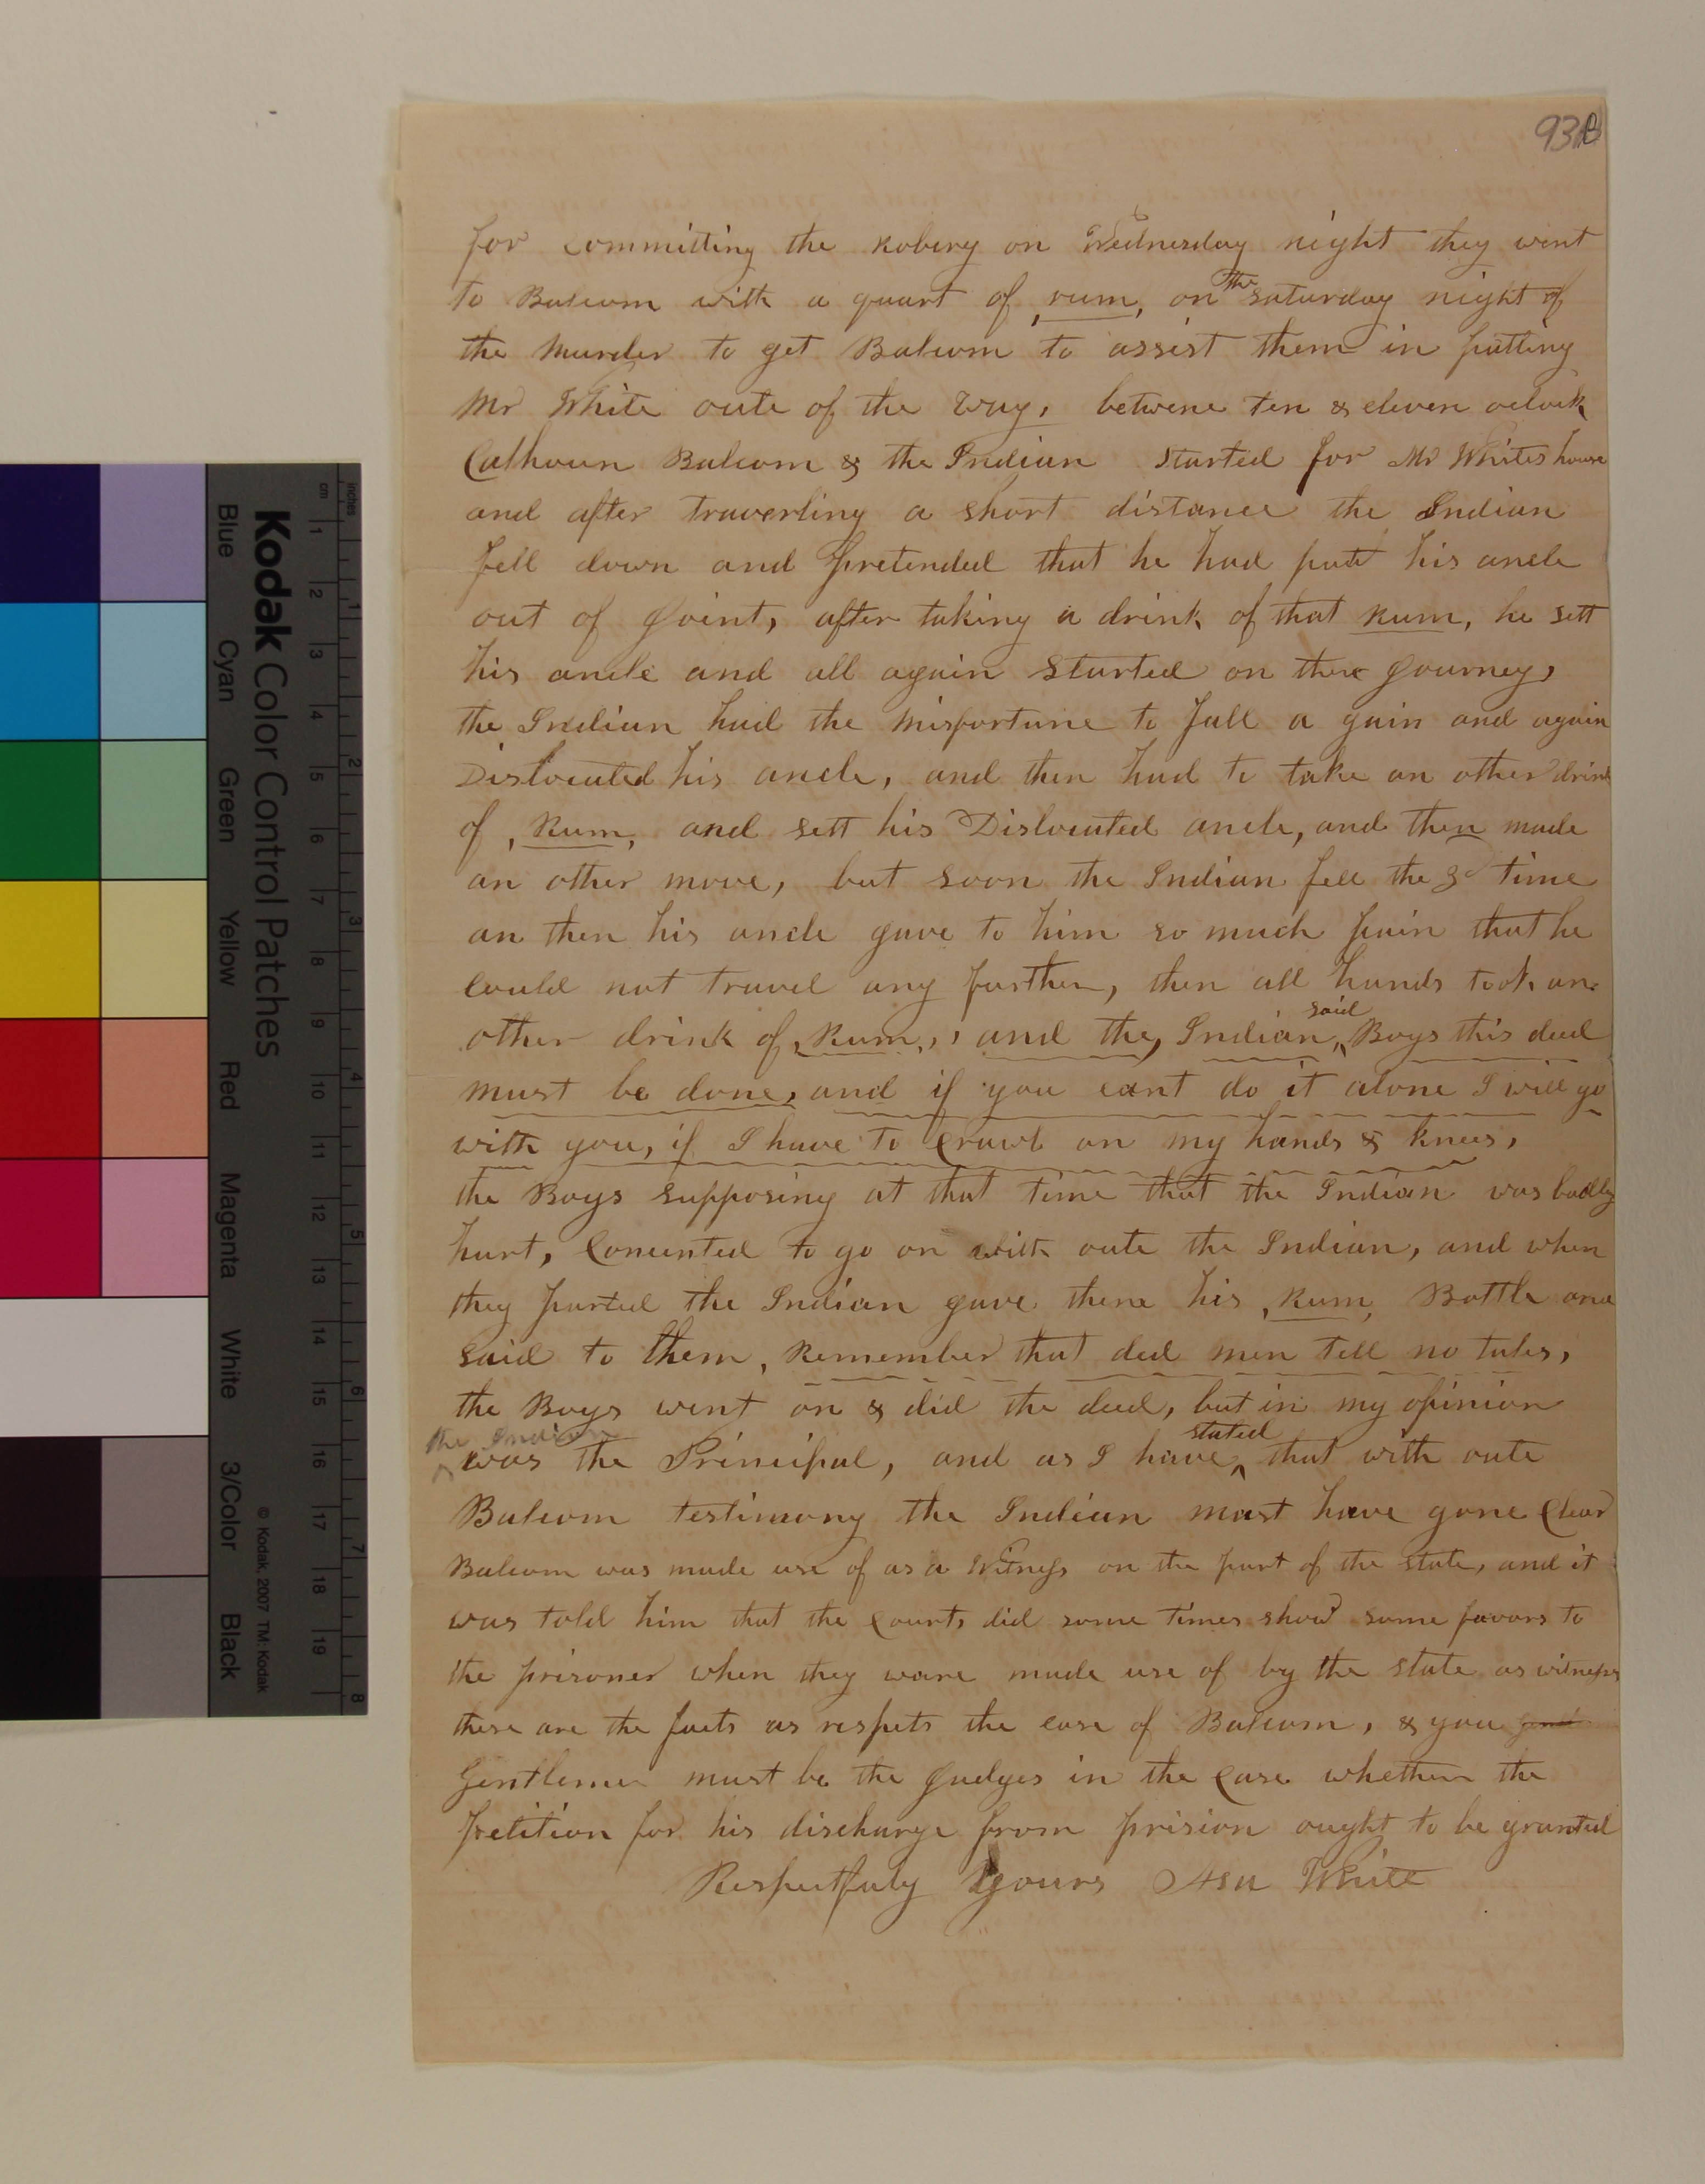 93B
for committing the Robery on Wednesday night they went
to Balcom with a quart of ,rum, on the saturday night of
the Murder to get Balcom to assist them in putting
Mr White oute of the Way, betwene ten & eleven oclock
Calhoun Balcom & the Indian started for Mr Whites house
and after traverling a short distance the Indian
fell down and pretended that he had putt his ancle
out of Joint, after taking a drink of that Rum, he sett
his ancle and all again started on there Journey,
the Indian had the Misfortune to fall a gain and again
Dislocated his ancle, and then had to take an other drink
of ,Rum, and sett his Dislocated ancle, and then made
an other move, but soon the Indian fell the 3d time
an then his ancle gave to him so much pain that he
Could not travel any further, then all hands took an
other drink of ,Rum,, and the, Indian said Boys this deed
must be done, and if you cant do it alone I will go
with you, if I have to Crawl on my hands & knees,
the Boys supposing at that time that the Indian was badly
hurt, Concented to go on with oute the Indian, and when
they parted the Indian gave thene his ,Rum, Bottle and
said to them, Remember that ded men tell no tales,
the Boys went on & did the deed, but in my opinion
the Indian was the Principal, and as I have stated that with oute
Balcom testimony the Indian must have gone Clear
Balcom was made use of as a Witness on the part of the state, and it
was told him that the Courts did some times show some favors to
the prisoner when they ware made use of by the state as witness
these are the facts as respets the case of Balcom, & you
Gentlemen must be the Judges in the Case whether the
petition for his discharge from prision ought to be granted
Respectfuly Yours Asa White
Kodak Color Control Patches
Blue Cyan Green Yellow Red Magenta White 3/Color Black
© Kodak, 2007 TM: Kodak
inches 1 2 3 4 5 6 7 8
cm 1 2 3 4 5 6 7 8 9 10 11 12 13 14 15 16 17 18 19